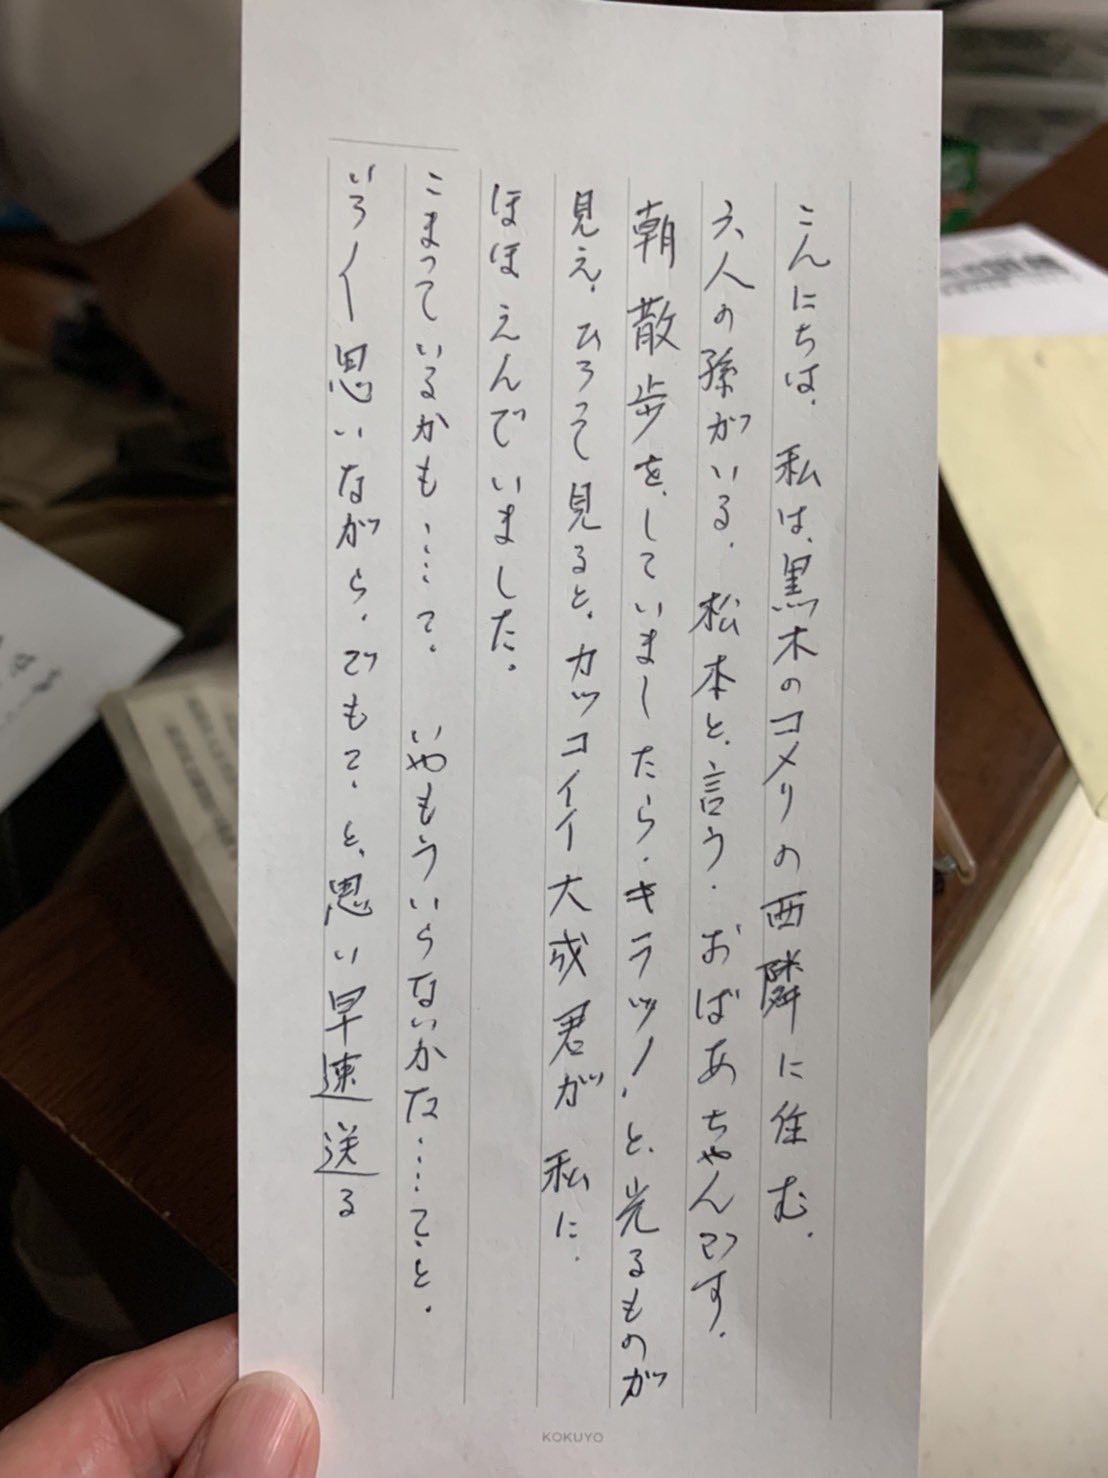 こんにちは、私は、黒木のコメリの西隣に住む、
六人の孫がいる、松本と、言う、おばあちゃんです。
朝散歩を、していましたら、キラッ!、と、光るものが
見え、ひろって見ると、カッコイイ大成君が私に、
ほほえんでいました。
こまっているかも……て、いやもういらないかな……て、と、
いろ〳〵思いながら、でもて、と、思い早速送る
KOKUYO